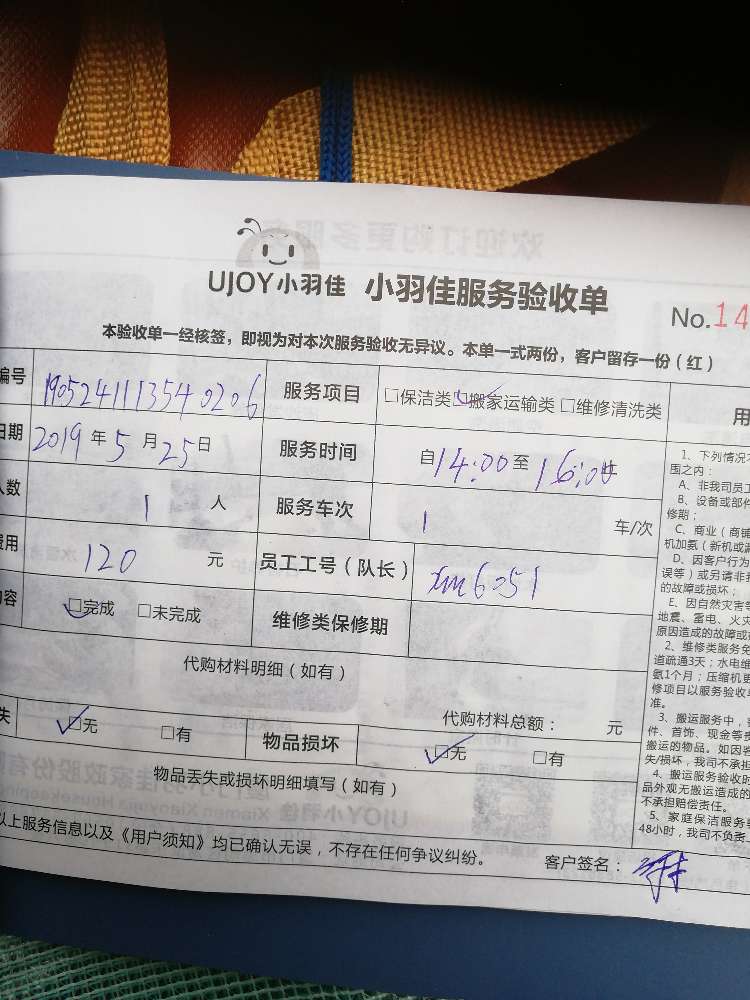 UJOY小羽佳 小羽佳服务验收单
No.14
本验收单一经核签，即视为对本次服务验收无异议。本单一式两份，客户留存一份（红）
编号 190524111354 0206 服务项目 □保洁类 ☑搬家运输类 □维修清洗类
日期 2019年5月25日 服务时间 自14:00至16:00
人数 1 人 服务车次 1 车/次
费用 120 元 员工工号（队长） xm6051
内容 ☑完成 □未完成 维修类保修期
代购材料明细（如有）
代购材料总额： 元
失 ☑无 □有 物品损坏 ☑无 □有
物品丢失或损坏明细填写（如有）
以上服务信息以及《用户须知》均已确认无误，不存在任何争议纠纷。 客户签名：
用
1、下列情况不
围之内：
A、非我司员工
B、设备或部件
修期；
C、商业（商铺
机加氨（新机或漏
D、因客户行为
误等）或另请非我
的故障或损坏；
E、因自然灾害等
地震、雷电、火灾
原因造成的故障或
2、维修类服务免
道疏通3天；水电维
氨1个月；压缩机更
修项目以服务验收单
准。
3、搬运服务中，客
件、首饰、现金等贵
搬运的物品。如因客
失/损坏，我司不承担
4、搬运服务验收时
品外观无搬运造成的
不承担赔偿责任。
5、家庭保洁服务验
48小时，我司不负责